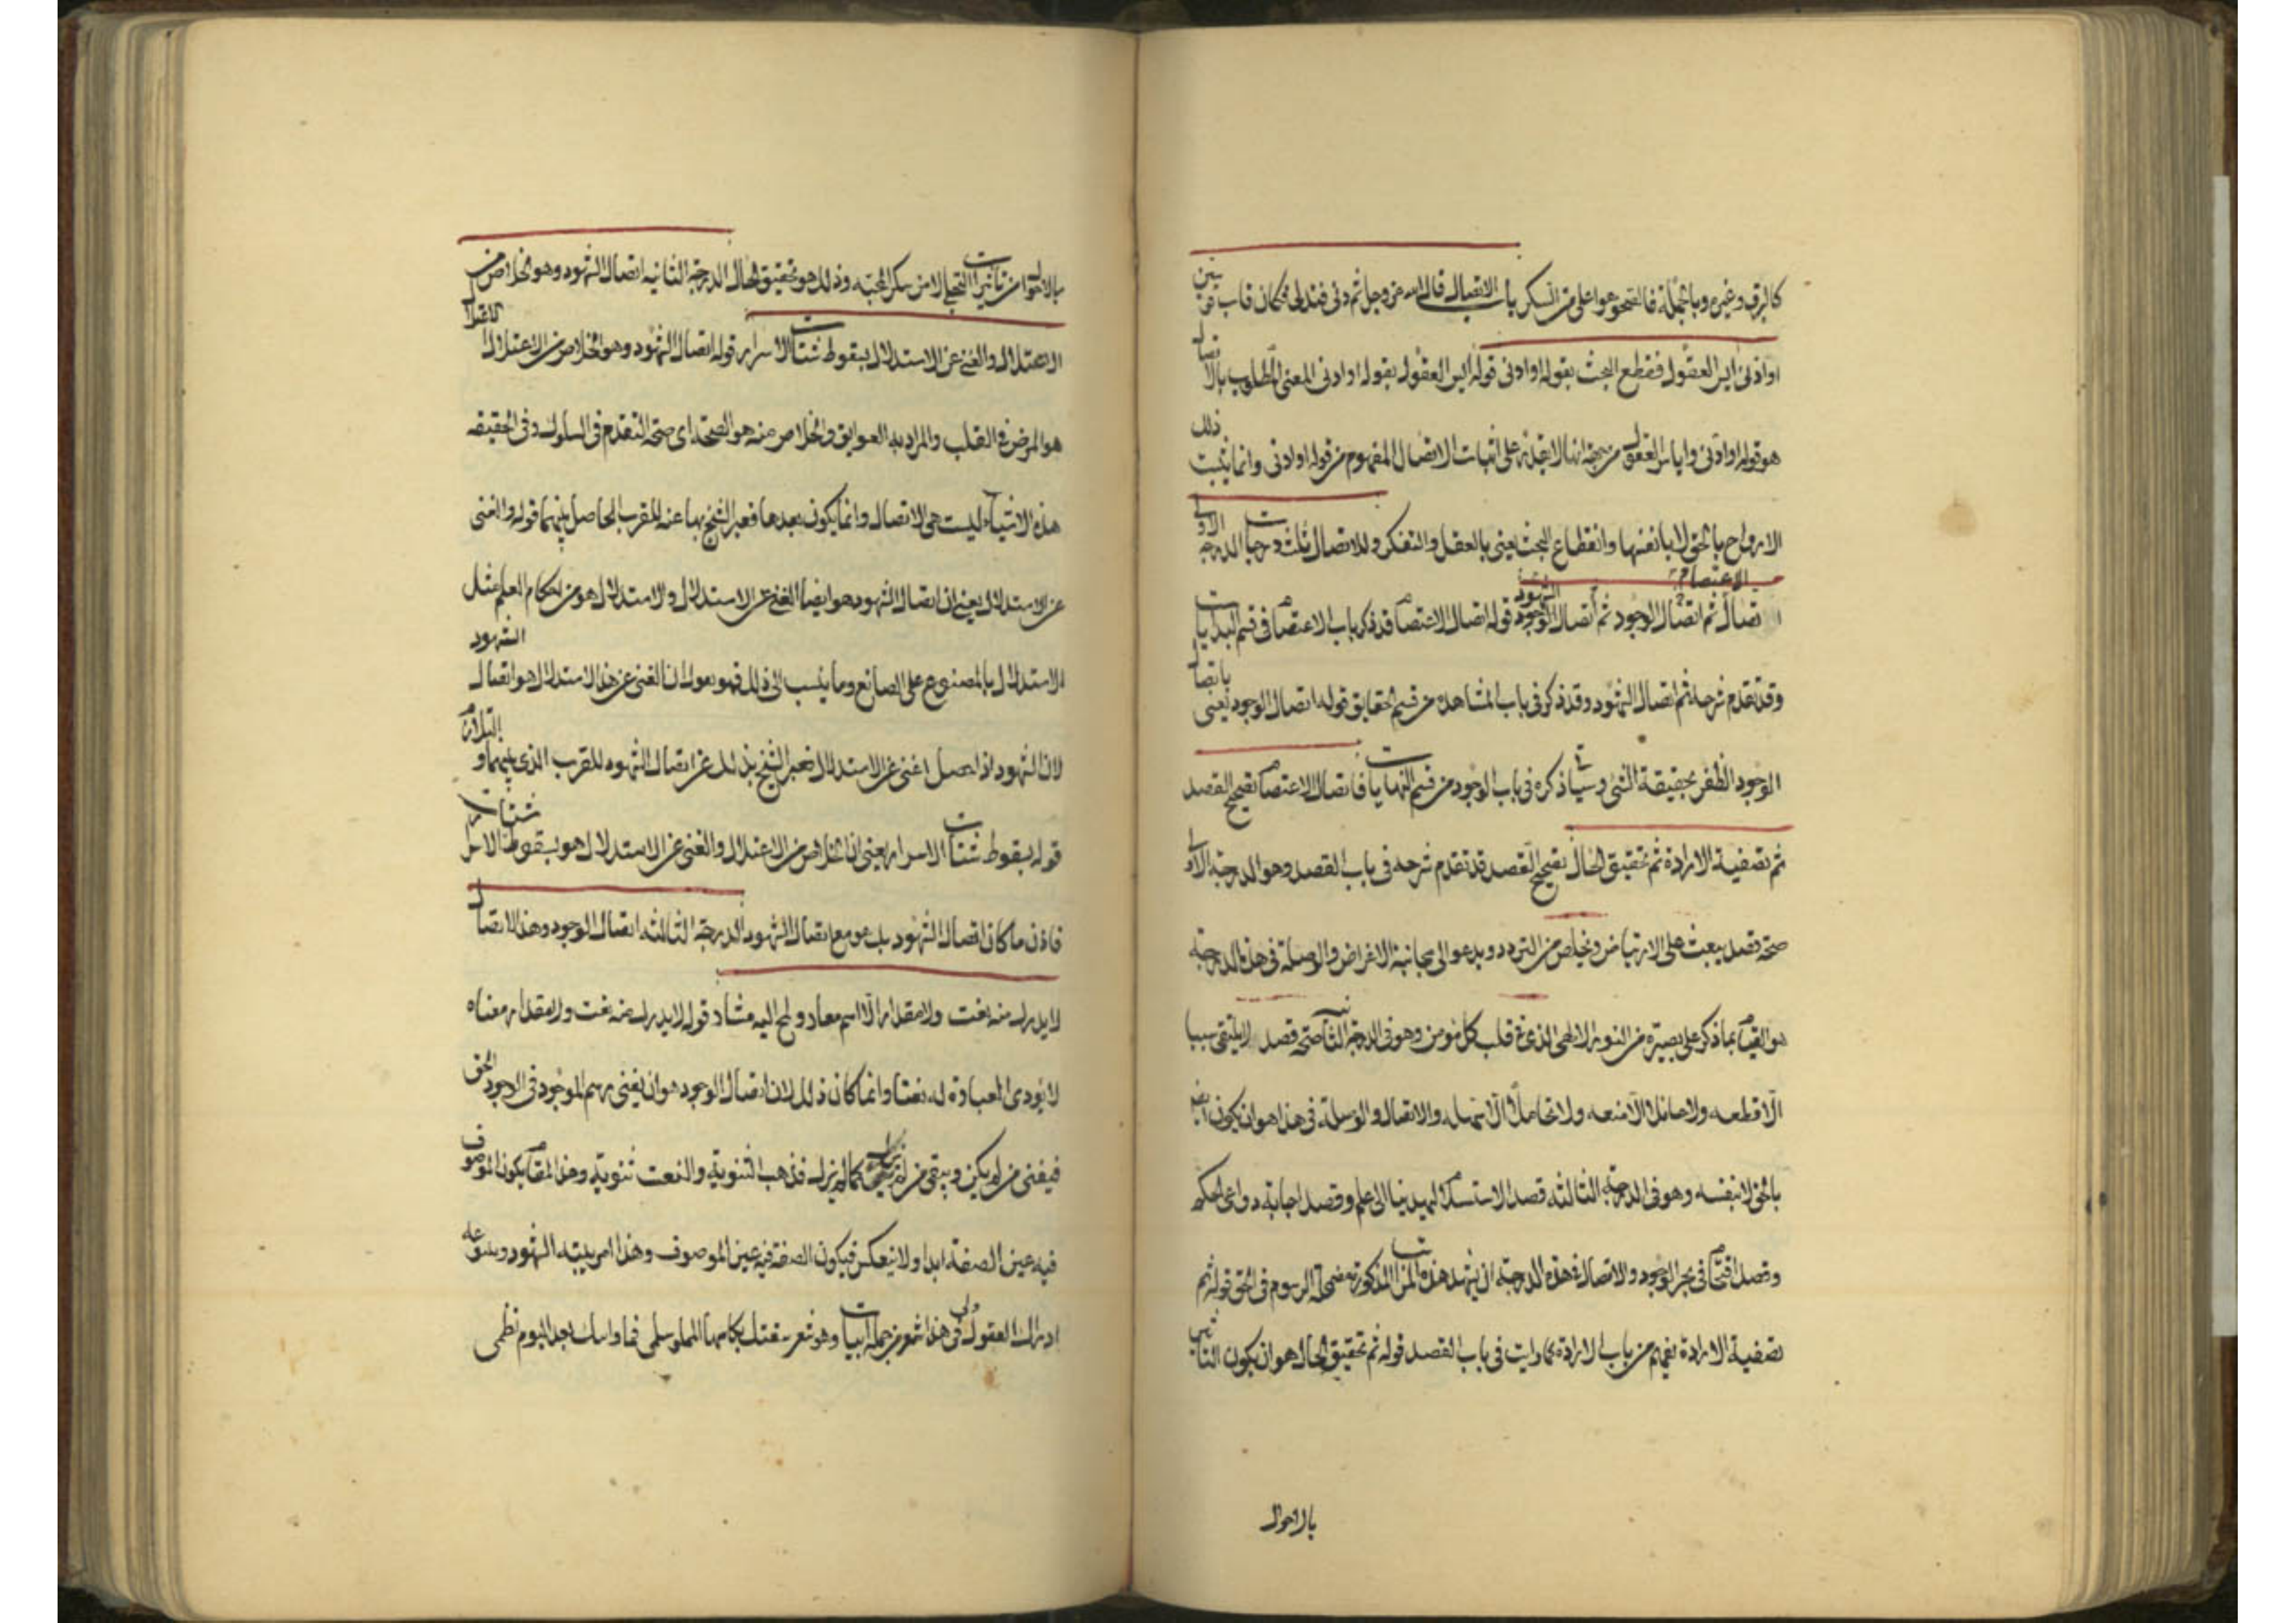 كالبرق وغيره وبالجملة فالصحو هو اعلى من السكر باب الاتصال قال الله عز وجل ثم دنى فتدلى فكان قاب قوسين
او ادنى ايس العقول فقطع البحث بقوله او ادنى قوله ايس العقول بقوله او ادنى المعنى المطلوب بالاتصال
هو قوله او ادنى واياس العقول من جهة انها لا تقدر على اثبات الاتصال المفهوم من قوله او ادنى وانما يثبت ذلك
الارواح بالحق لا بانفسها وانقطاع البحث يعنى بالعقل والتفكر وللاتصال ثلث درجات الدرجة الاولى
الاعتصام
اتصال ثم اتصال الوجود ثم اتصال الوجود الشهود قوله اتصال الاعتصام قد ذكر باب الاعتصام فى قسم البدايات
وقد تقدم شرحه ثم اتصال الشهود وقد ذكر فى باب المشاهدة من قسم الحقايق قوله اتصال الوجود يعنى باتصال
الوجود الظفر بحقيقة الشئ وسياتى ذكره فى باب الوجود من قسم النهايات فاتصال الاعتصام تصحيح القصد
ثم تصفية الارادة ثم تحقيق الحال تصحيح القصد قد تقدم شرحه فى باب القصد وهو الدرجة الاولى
صحة قصد يبعث على الارتياض ويخلص من التردد ويدعو الى مجانبة الاغراض والوصلة فى هذه الدرجة
هو القيام بما ذكر على بصيرة من النور الالهى الذى فى قلب كل مومن وهو فى الدرجة الثانية صحة قصد لا يلتقى سببا
الا قطعه ولا حائلا الا منعه ولا تحاملا الا سهله والاتصال والوسلة فى هذا هو ان يكون
بالحق لا بنفسه وهو فى الدرجة الثالثة قصد الاستسلام لهيدينا الى علم وقصد اجابة دواعى الحكم
وقصد اقتحام فى بحر الوجود والاتصال فى هذه الدرجة ان يشهد هذه المذكورة مضمحلة الرسوم فى الحق قوله ثم
تصفية الارادة تفهم من باب الارادة كما رايت فى باب القصد قوله ثم تحقيق الحال هو ان يكون
بالاحوال
بالاحوال من تاثيرات التجلى لا من سكر المحبه وذلك هو تحقيق الحال الدرجة الثانيه اتصال الشهود وهو الخلاص من
الاعتلال والغنى عن الاستدلال بسقوط شتات الاسرار قوله اتصال الشهود وهو الخلاص من الاعتلال الاعتلال
هو المرض فى القلب والمراد به العوايق والخلاص منه هو الصحة اى صحة التقدم فى السلوك وفى الحقيقه
هذه الاشياء ليست هى الاتصال وانما يكون بعدها فعبر الشيخ بها عنه للقرب الحاصل بينهما قوله والغنى
عن الاستدلال يعنى ان اتصال الشهود هو ايضا الغنى عن الاستدلال والاستدلال هو من احكام العلم مثل
الاستدلال بالمصنوع على الصانع وما ينسب الى ذلك فهو يقول ان الغنى عن هذا الاستدلال هو اتصال الشهود
لان الشهود اذا حصل اغنى عن الاستدلال فعبر الشيخ بذلك عن اتصال الشهود للقرب الذى بينهما والتلازم
قوله بسقوط شتات الاسرار يعنى ان الخلاص من الاعتلال والغنى عن الاستدلال هو بسقوط شتات الاسرار
فاذن ما كان اتصال الشهود بل هو مع اتصال الشهود الدرجة الثالثه اتصال الوجود وهذا الاتصال
لا يدرك منه نعت ولا مقدار الا اسم معار ولمح اليه مشار قوله لا يدرك منه نعت ولا مقدار معناه
لا تؤدى العبارة له نعتا وانما كان ذلك لان اتصال الوجود هو ان يفنى رسم الموجود فى الوجود الحق
فيفنى من لم يكن ويبقى من لم يزل كما لم يزل فذهب الثنوية والنعت ثنوية وهذا المقام يكون الموصوف
فيه عين الصفة ابدا ولا ينعكس فيكون الصفة فيه عين الموصوف وهذا امر يثبته الشهود
ادراك العقول ولى فى هذا شعر من جملة ابيات وهو شعر سقتك بكاسها سلمى فما